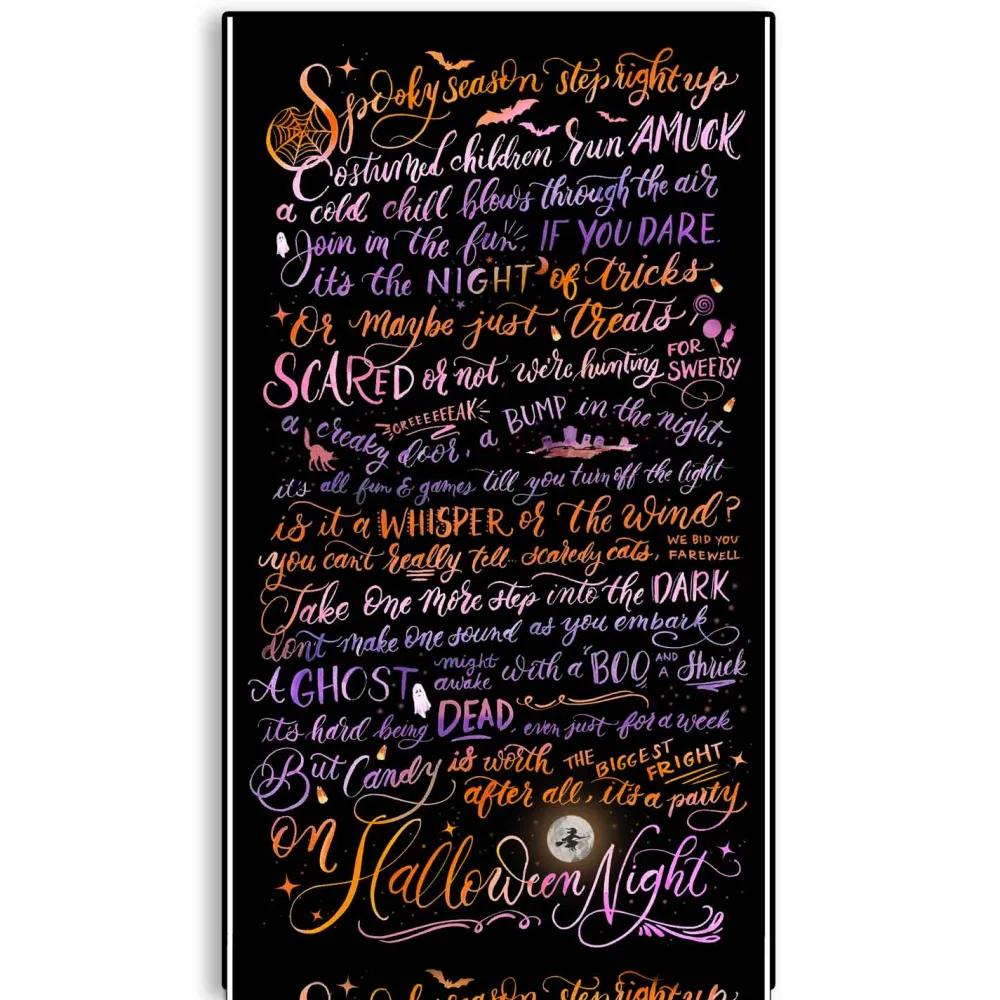 Spooky season step right up
Costumed children run AMUCK
a cold chill blows through the air
Join in the fun, IF YOU DARE.
it's the NIGHT of tricks
Or maybe just treats
SCARED or not, we're hunting FOR SWEETS!
a creaky door, CREEEEEEAK a BUMP in the night,
it's all fun & games till you turn off the light
is it a WHISPER or the wind?
you can't really tell... scaredy cats, WE BID YOU FAREWELL
Take one more step into the DARK
don't make one sound as you embark
A GHOST might awake with a "BOO" AND A Shriek
it's hard being DEAD, even just for a week
But Candy is worth THE BIGGEST FRIGHT
after all, it's a party
on Halloween Night
Spooky season step right up